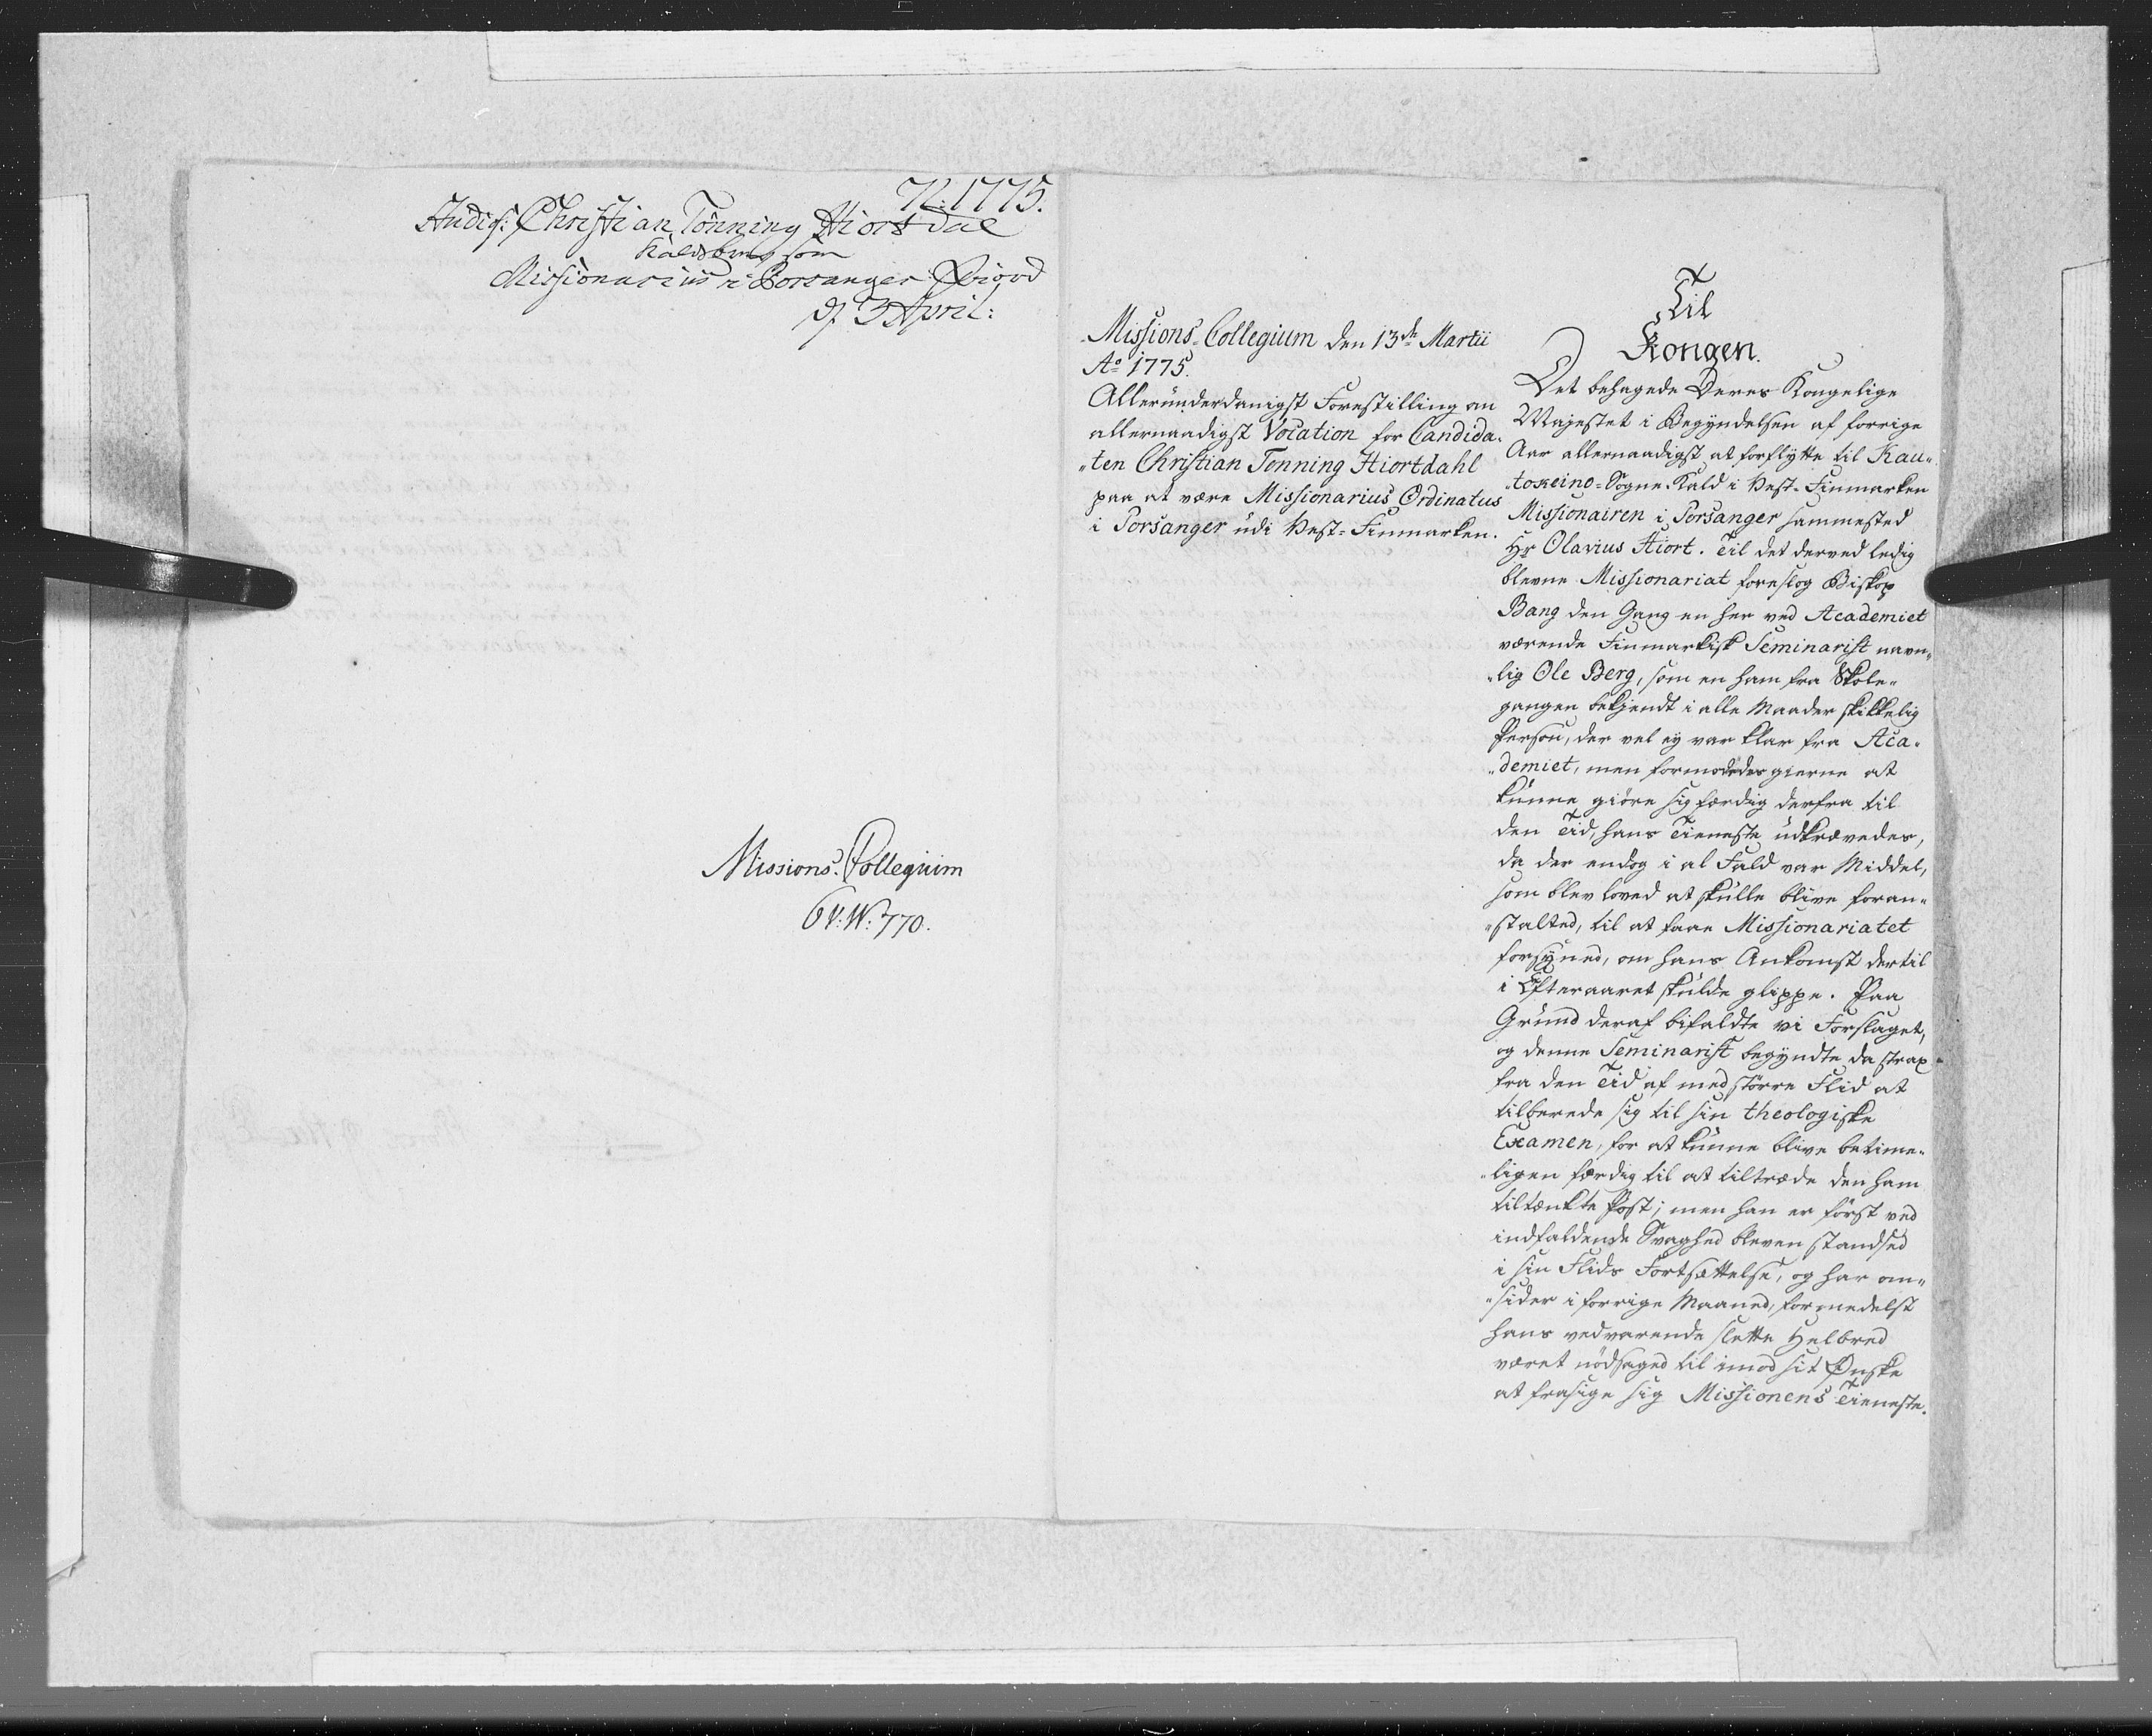 1775.
Studios: Christian Tønning Hiortdal
Kaldsbrev som
Missionarius i Porsanger Fiord
d. 3 April:
Missions-Collegium
6 V: N: 770.
Missions-Collegium den 13de Martii
Ao 1775.
Alleründerdanigst Forestilling om
allernaadigst Vocation for Candida-
-ten Christian Tonning Hiortdahl
paa at være Missionarius Ordinatus
i Porsanger üdi Vest-Finmarken.
Til
Kongen.
Det behagede Deres Kongelige
Majestet i Begyndelsen af forrige
Aar allernaadigst at forflytte til Kau-
-tokeino-Sogne-Kald i Vest-Finmarken
Missionairen i Porsanger sammested
Hr Olavius Hiort. Til det derved ledig
blevne Missionariat foreslog Biskop
Bang den Gang en her ved Academiet
værende Finmarkisk Seminarist navn-
-lig Ole Berg, som en ham fra Skole-
gangen bekjendt i alle Maader skikkelig
Person, der vel ey var klar fra Aca-
-demiet, men formodedes gierne at
künne giöre sig færdig derfra til
den Tid, hans Tieneste üdkrævedes,
da der endog i al Fald var Middel,
som blev loved at skülle blive foran-
-stalted, til at faae Missionariatet
forsyned, om hans Ankomst dertil
i Efteraaret skülde glippe. Paa
Gründ deraf bifaldte vi Forslaget,
og denne Seminarist begyndte da strax
fra den Tid af med större Flid at
tilberede sig til sin theologiske
Examen, for at künne blive betime-
-ligen færdig til at tiltræde den ham
tiltænkte Post; men han er först ved
indfaldende Svaghed bleven standsed
i sin Flids Fortsættelse, og har om-
-sider i forrige Maaned, formedelst
hans vedvarende slette Helbred
været nödsaged til imod sit Ønske
at frasige sig Missionens Tieneste.